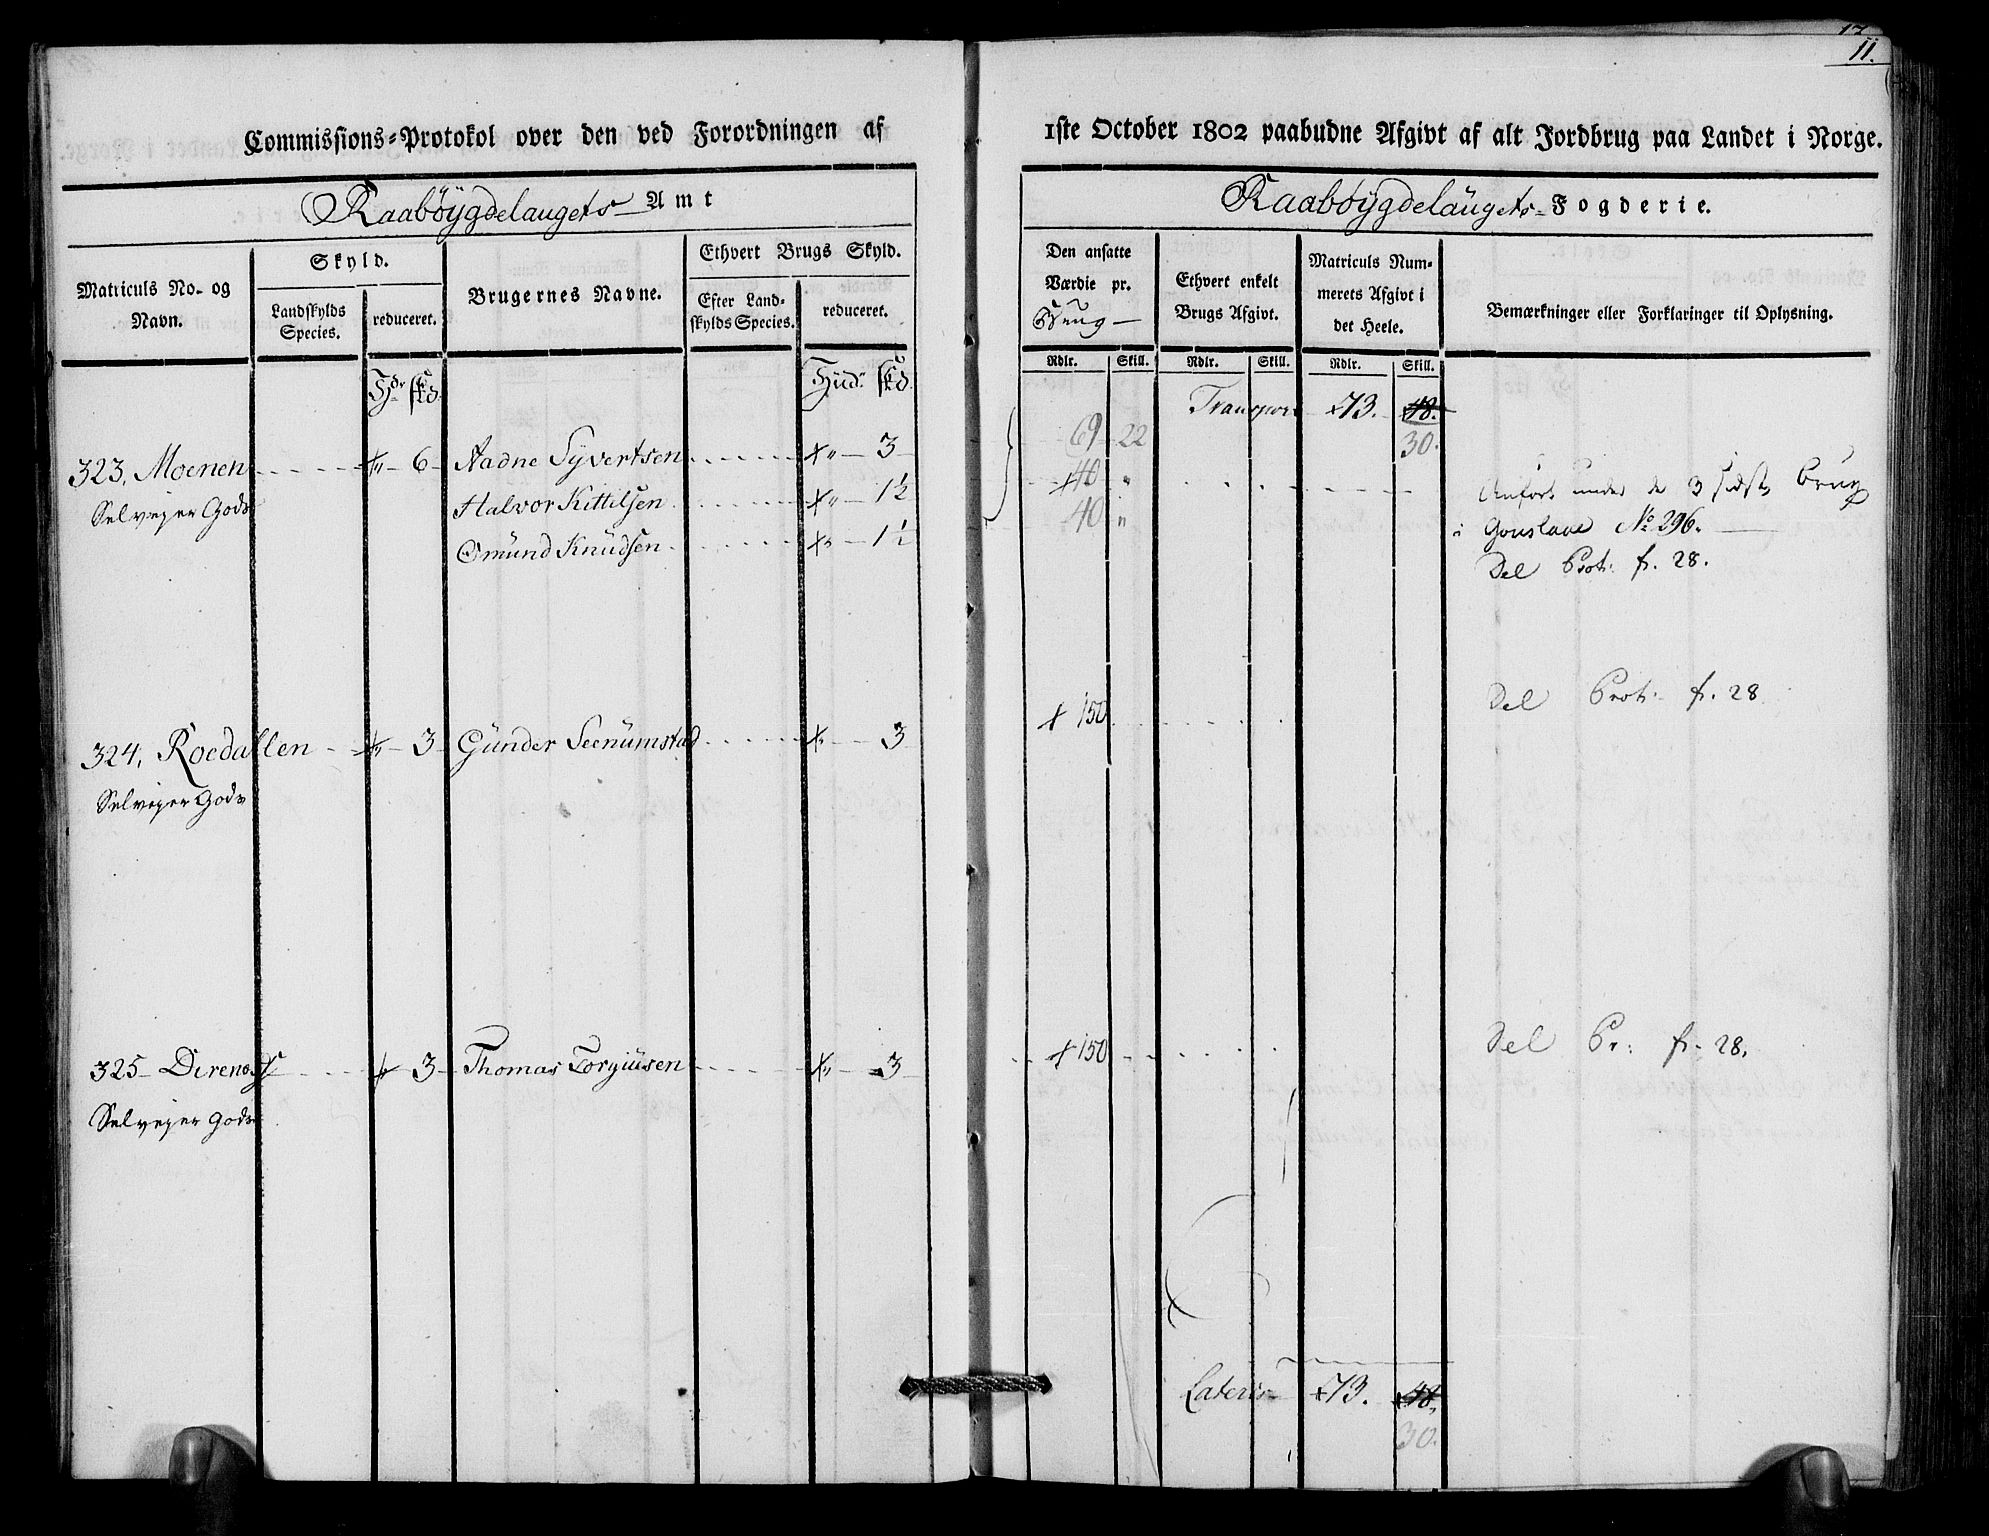 17
11.
Commissions=Protokol over den ved Forordningen af
1ste October 1802 paabudne Afgivt af alt Jordbrug paa Landet i Norge.
Raabøygdelaugets Amt
Raabøygdelaugets Fogderie.
Matriculs No. og Navn.
Skyld.
Landskylds Species.
reduceret.
Brugernes Navne.
Ethvert Brugs Skyld.
Efter Landskylds Species.
reduceret.
Den ansatte Værdie pr. Brug
Ethvert enkelt Brugs Afgivt.
Matriculs Nummerets Afgivt i det Heele.
Bemærkninger eller Forklaringer til Oplysning.
Rdlr. Skill. Rdlr. Skill. Rdlr. Skill.
Transport 73. 48.
30.
323, Moenen 6 Aadne Syvertsen 3 69 22
Selveyer Gods Halvor Kittilsen 1½ 40 "
Omund Knudsen 1½ 40 "
Anført under de 3 sidste Brug
i No 296.
Del Prot: fr. 28.
324, Roedallen 3 Gunder Seenumstad 3 150
Selveyer Gods
Del Prot: fr. 28
325 3 Thomas Torgiusen 3 150
Selveyer Gods
Del Pr: fr. 28.
Lateris 73. 48.
30.